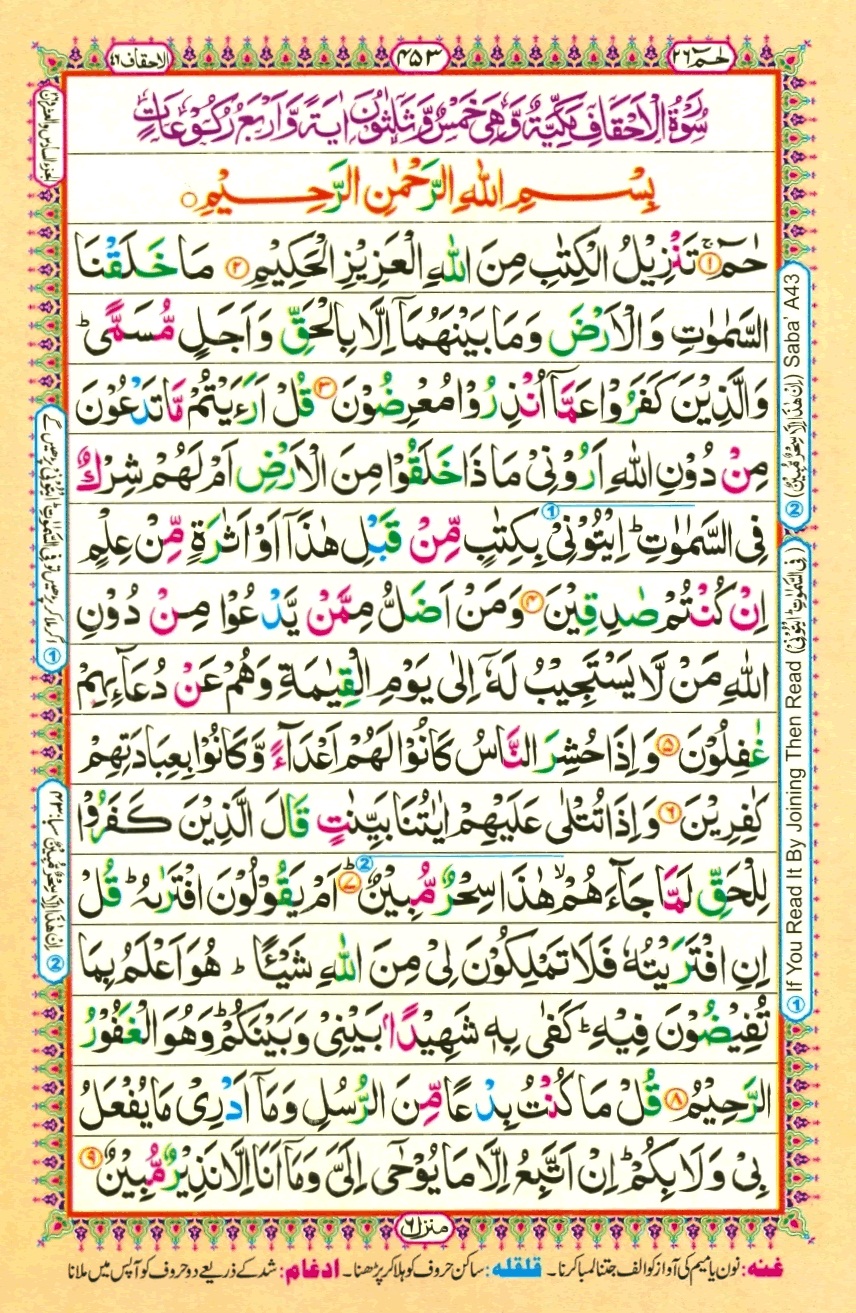 الاحقاف ٤٦
۴۵۳
حٰمٓ ٢٦
سُوْرَةُ الْاَحْقَافِ مَكِّيَّةٌ وَّهِيَ خَمْسٌ وَّثَلٰثُوْنَ اٰيَةً وَّاَرْبَعُ رُكُوْعَاتٍ
بِسْمِ اللهِ الرَّحْمٰنِ الرَّحِيْمِ
حٰمٓ ۚ﴿١﴾ تَنْزِيْلُ الْكِتٰبِ مِنَ اللهِ الْعَزِيْزِ الْحَكِيْمِ ﴿٢﴾ مَا خَلَقْنَا
السَّمٰوٰتِ وَالْاَرْضَ وَمَا بَيْنَهُمَآ اِلَّا بِالْحَقِّ وَاَجَلٍ مُّسَمًّى ؕ
وَالَّذِيْنَ كَفَرُوْا عَمَّآ اُنْذِرُوْا مُعْرِضُوْنَ ﴿٣﴾ قُلْ اَرَءَيْتُمْ مَّا تَدْعُوْنَ
مِنْ دُوْنِ اللهِ اَرُوْنِيْ مَاذَا خَلَقُوْا مِنَ الْاَرْضِ اَمْ لَهُمْ شِرْكٌ
فِي السَّمٰوٰتِ ؕ اِيْتُوْنِيْ بِكِتٰبٍ مِّنْ قَبْلِ هٰذَآ اَوْ اَثٰرَةٍ مِّنْ عِلْمٍ
اِنْ كُنْتُمْ صٰدِقِيْنَ ﴿٤﴾ وَمَنْ اَضَلُّ مِمَّنْ يَّدْعُوْا مِنْ دُوْنِ
اللهِ مَنْ لَّا يَسْتَجِيْبُ لَهٗٓ اِلٰى يَوْمِ الْقِيٰمَةِ وَهُمْ عَنْ دُعَآئِهِمْ
غٰفِلُوْنَ ﴿٥﴾ وَاِذَا حُشِرَ النَّاسُ كَانُوْا لَهُمْ اَعْدَآءً وَّكَانُوْا بِعِبَادَتِهِمْ
كٰفِرِيْنَ ﴿٦﴾ وَاِذَا تُتْلٰى عَلَيْهِمْ اٰيٰتُنَا بَيِّنٰتٍ قَالَ الَّذِيْنَ كَفَرُوْا
لِلْحَقِّ لَمَّا جَآءَهُمْ ۙ هٰذَا سِحْرٌ مُّبِيْنٌ ؕ﴿٧﴾ اَمْ يَقُوْلُوْنَ افْتَرٰىهُ ؕ قُلْ
اِنِ افْتَرَيْتُهٗ فَلَا تَمْلِكُوْنَ لِيْ مِنَ اللهِ شَيْئًا ؕ هُوَ اَعْلَمُ بِمَا
تُفِيْضُوْنَ فِيْهِ ؕ كَفٰى بِهٖ شَهِيْدًۢا بَيْنِيْ وَبَيْنَكُمْ ؕ وَهُوَ الْغَفُوْرُ
الرَّحِيْمُ ﴿٨﴾ قُلْ مَا كُنْتُ بِدْعًا مِّنَ الرُّسُلِ وَمَآ اَدْرِيْ مَا يُفْعَلُ
بِيْ وَلَا بِكُمْ ؕ اِنْ اَتَّبِعُ اِلَّا مَا يُوْحٰٓى اِلَيَّ وَمَآ اَنَا اِلَّا نَذِيْرٌ مُّبِيْنٌ ﴿٩﴾
① If You Read It By Joining Then Read (فِي السَّمٰوٰتِ ايْتُوْنِيْ)
② (اِنْ هٰذَآ اِلَّا سِحْرٌ مُّبِيْنٌ) Saba' A43
② اِنْ هٰذَآ اِلَّا سِحْرٌ مُّبِيْنٌ سبا: ۴۳
منزل ٦
غنه: نون یا میم کی آواز کو الف جتنا لمبا کرنا۔ قلقله: ساکن حروف کو ہلا کر پڑھنا۔ ادغام: شد کے ذریعے دو حروف کو آپس میں ملانا